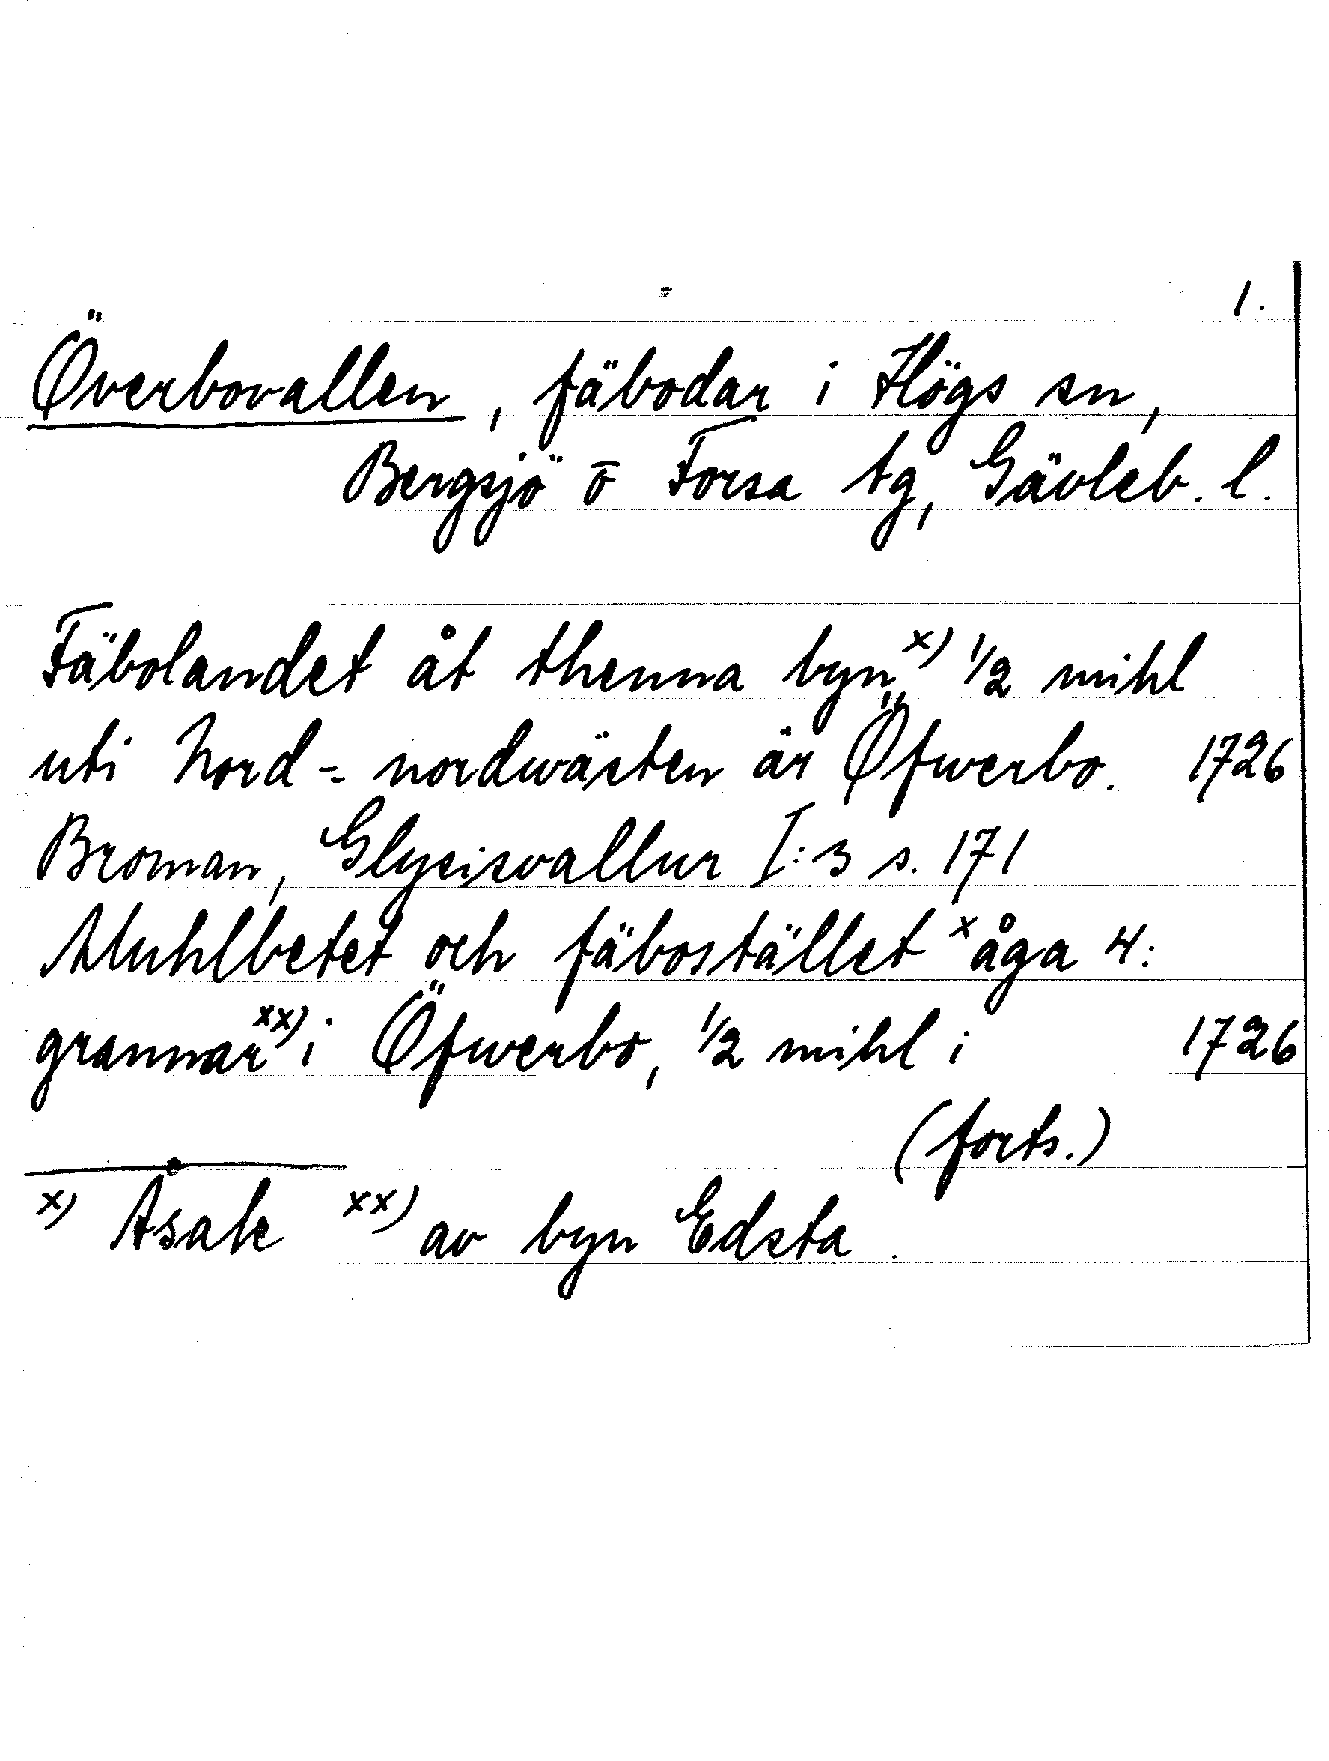 1.
Överbovallen, fäbodar i Högs sn,
Bergsjö o Forsa tg, Gävleb. l.
Fäbolandet åt thenna byn x) 1/2 mihl
uti Nord-nordwästen är Öfwerbo. 1726
Broman, Glysisvallur I:3 s. 171
Muhlbetet och fäbostället x åga 4:
grannar xx) i Öfwerbo, 1/2 mihl i 1726
(forts.)
x) Åsak xx) av byn Edsta.